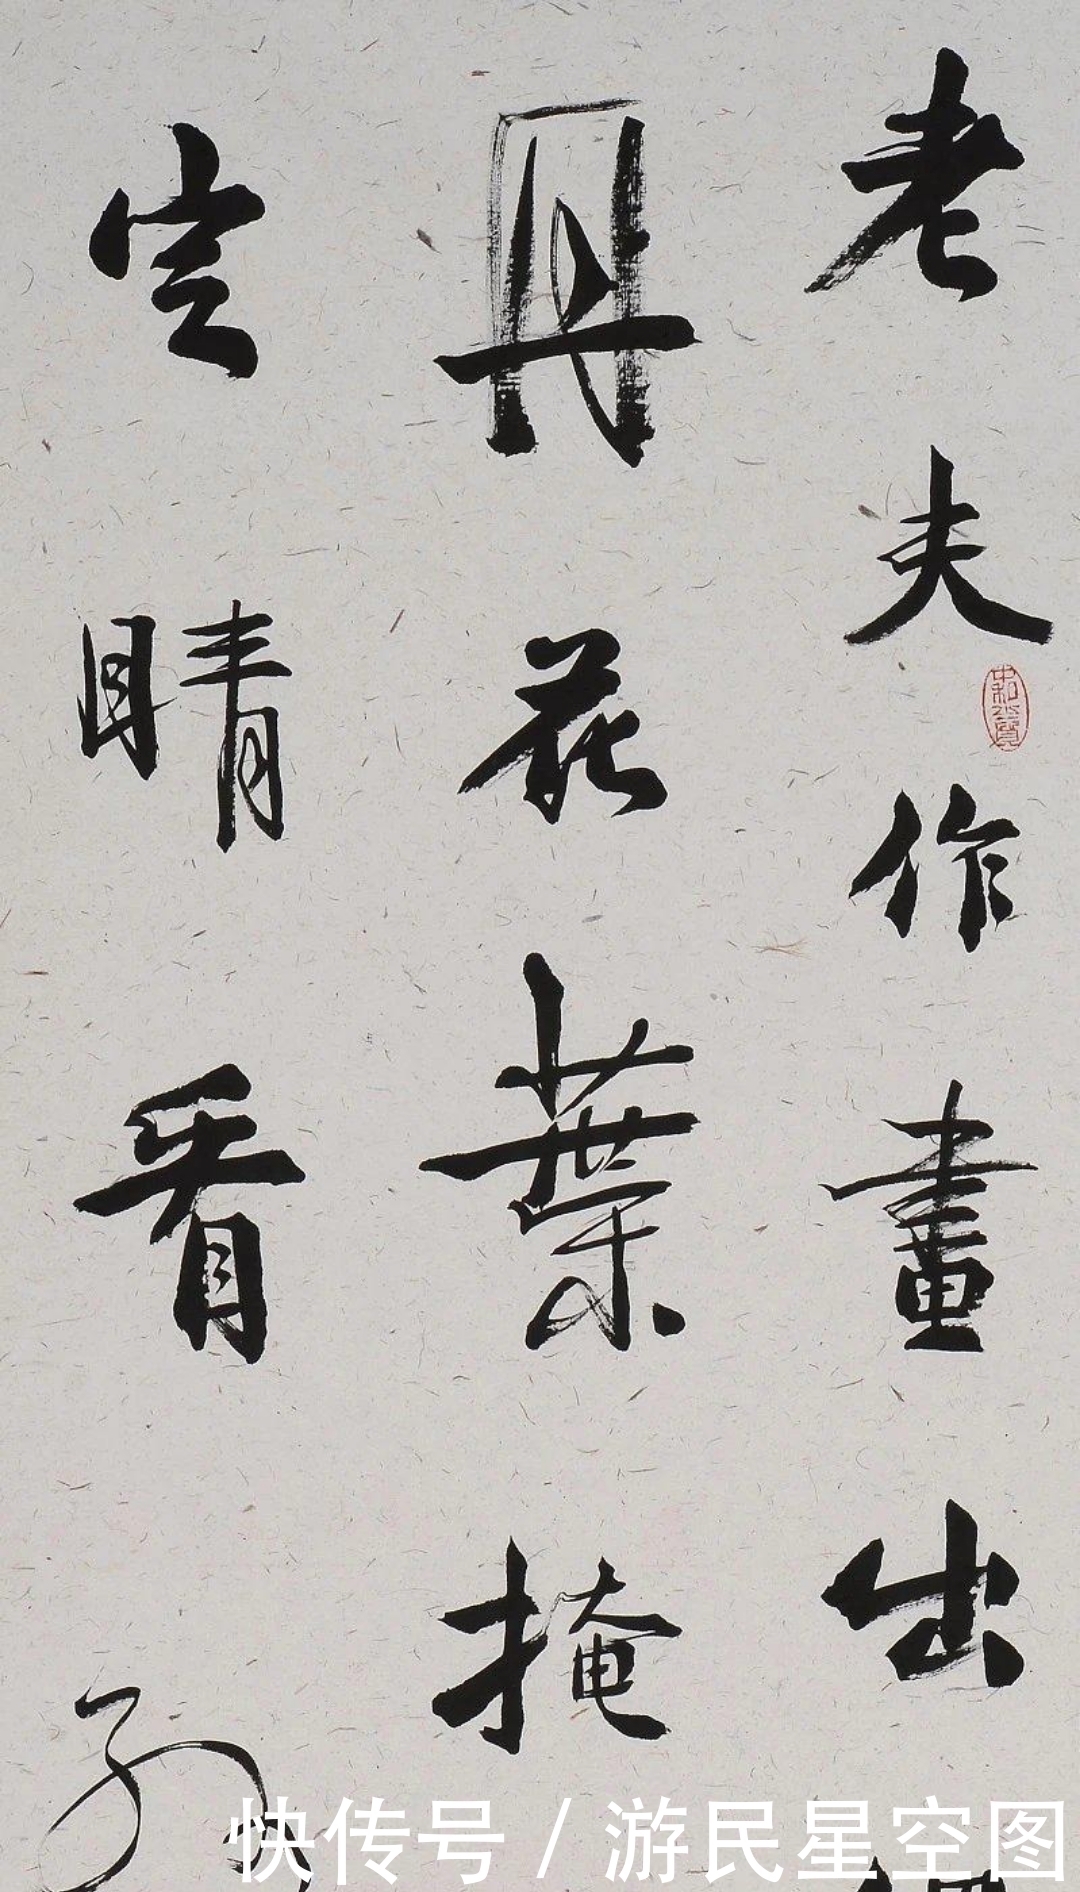 老夫作畫出
丹花葉掩
定睛看
快传号/游民星空图